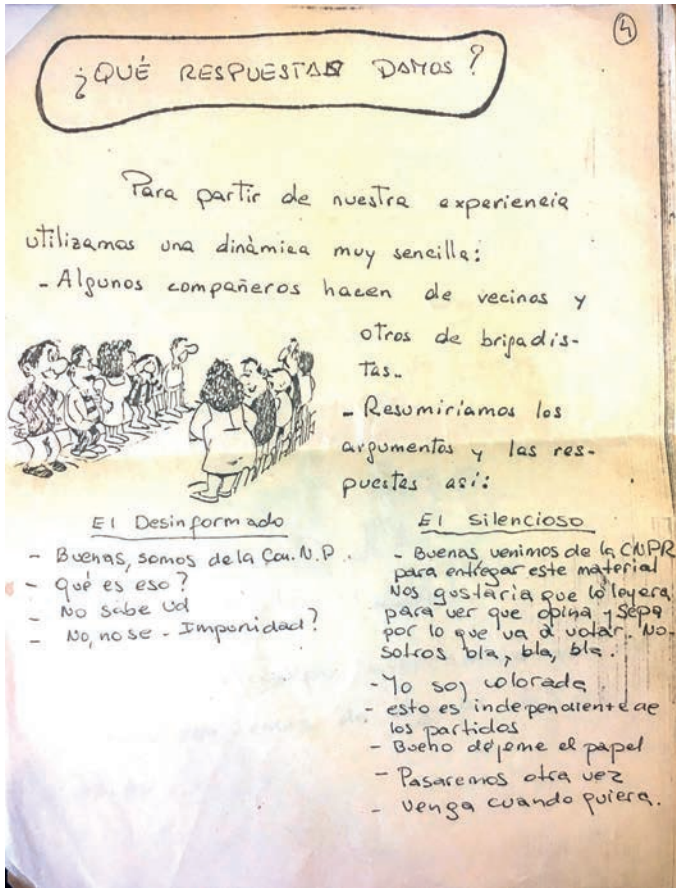 4
¿QUÉ RESPUESTAS DAMOS?
Para partir de nuestra experiencia
utilizamos una dinámica muy sencilla:
- Algunos compañeros hacen de vecinos y
otros de brigadis-
tas.
- Resumiríamos los
argumentos y las res-
puestas así:
El Desinformado
- Buenas, somos de la Con. N. P.
- Qué es eso?
- No sabe Ud
- No, no se - Impunidad?
El Silencioso
- Buenas, venimos de la CNPR
para entregar este material
Nos gustaría que lo leyera
para ver que opina y sepa
por lo que va a votar. No-
sotros bla, bla, bla.
- Yo soy colorada.
- esto es independiente de
los partidos
- Bueno déjeme el papel
- Pasaremos otra vez
- venga cuando quiera.